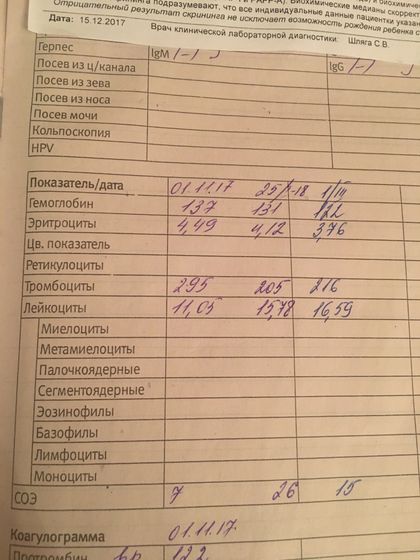 подразумевают, что все индивидуальные данные пациентки указаны
Отрицательный результат скрининга не исключает возможность рождения ребенка с
Дата: 15.12.2017
Врач клинической лабораторной диагностики: Шляга С.В.
Герпес IgM (-) IgG (-)
Посев из ц/канала
Посев из зева
Посев из носа
Посев мочи
Кольпоскопия
HPV
Показатель/дата 01.11.17 25/1-18 1/III
Гемоглобин 137 131 122
Эритроциты 4,49 4,12 3,76
Цв. показатель
Ретикулоциты
Тромбоциты 295 205 216
Лейкоциты 11,05 15,78 16,59
Миелоциты
Метамиелоциты
Палочкоядерные
Сегментоядерные
Эозинофилы
Базофилы
Лимфоциты
Моноциты
СОЭ 7 26 15
Коагулограмма 01.11.17
Протромбин 122